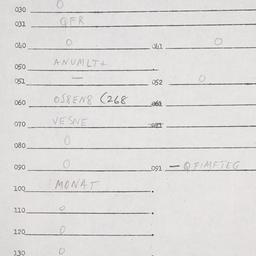 030 0
031 QFR
040 0 041 0
050 ANUMLT+
051 — 052 0
060 OS8EN8 (268 061
070 VESNE 071
080 0
090 0 091 —QFIMFTEG
100 MONAT
110 0
120 0
130 0